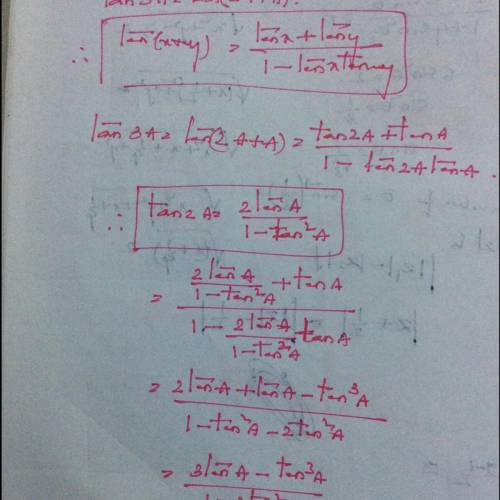 ∴ tan(x+y) = (tan x + tan y) / (1 - tan x tan y)
tan 3A = tan(2A+A) = (tan 2A + tan A) / (1 - tan 2A tan A).
∴ tan 2A = (2 tan A) / (1 - tan² A)
= ((2 tan A) / (1 - tan² A) + tan A) / (1 - (2 tan A) / (1 - tan² A) tan A)
= (2 tan A + tan A - tan³ A) / (1 - tan² A - 2 tan² A)
= (3 tan A - tan³ A)